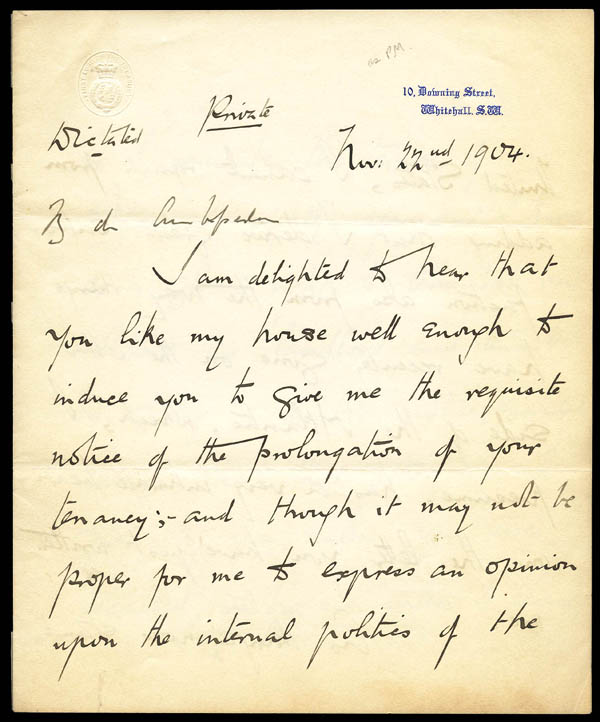 10, Downing Street,
Whitehall. S.W.
Private
Dictated
Nov: 22nd 1904.
My dr Ambassador
I am delighted to hear that
you like my house well enough to
induce you to give me the requisite
notice of the prolongation of your
tenancy:- and though it may not be
proper for me to express an opinion
upon the internal politics of the